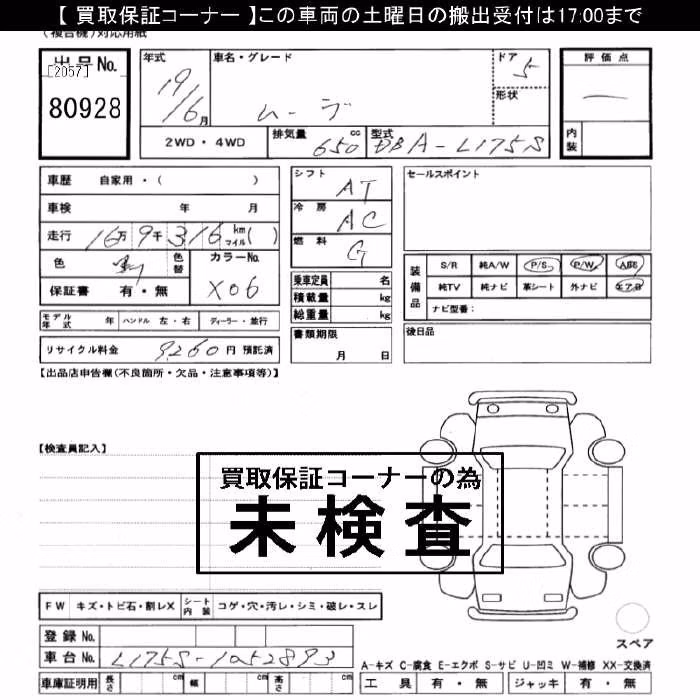 【 買取保証コーナー 】この車両の土曜日の搬出受付は17:00まで
(複合機)対応用紙
出品No.
[2057]
80928
年式
19/6月
車名・グレード
ムーヴ
ドア
5
形状
評価点
―
内装
2WD・4WD
排気量
650 cc
型式
DBA-L175S
車歴 自家用・( )
車検 年 月
走行 16万9千316 km マイル( )
色
色替
カラーNo.
X06
保証書 有・無
シフト
AT
冷房
AC
燃料
G
乗車定員 名
積載量 kg
総重量 kg
セールスポイント
装備品
S/R 純A/W P/S P/W ABS
純TV 純ナビ 革シート 外ナビ エアB
ナビ型番:
モデル年式 年 ハンドル 左・右 ディーラー・並行
リサイクル料金 9,260 円 預託済
書類期限
月 日
後日品
【出品店申告欄(不良箇所・欠品・注意事項等)】
【検査員記入】
買取保証コーナーの為
未検査
FW キズ・トビ石・割レX シート内装 コゲ・穴・汚レ・シミ・破レ・スレ
登録No.
車台No. L175S-1052893
車庫証明用 長さ cm 幅 cm 高さ cm
スペア
A-キズ C-腐食 E-エクボ S-サビ U-凹ミ W-補修 XX-交換済
工具 有・無 ジャッキ 有・無